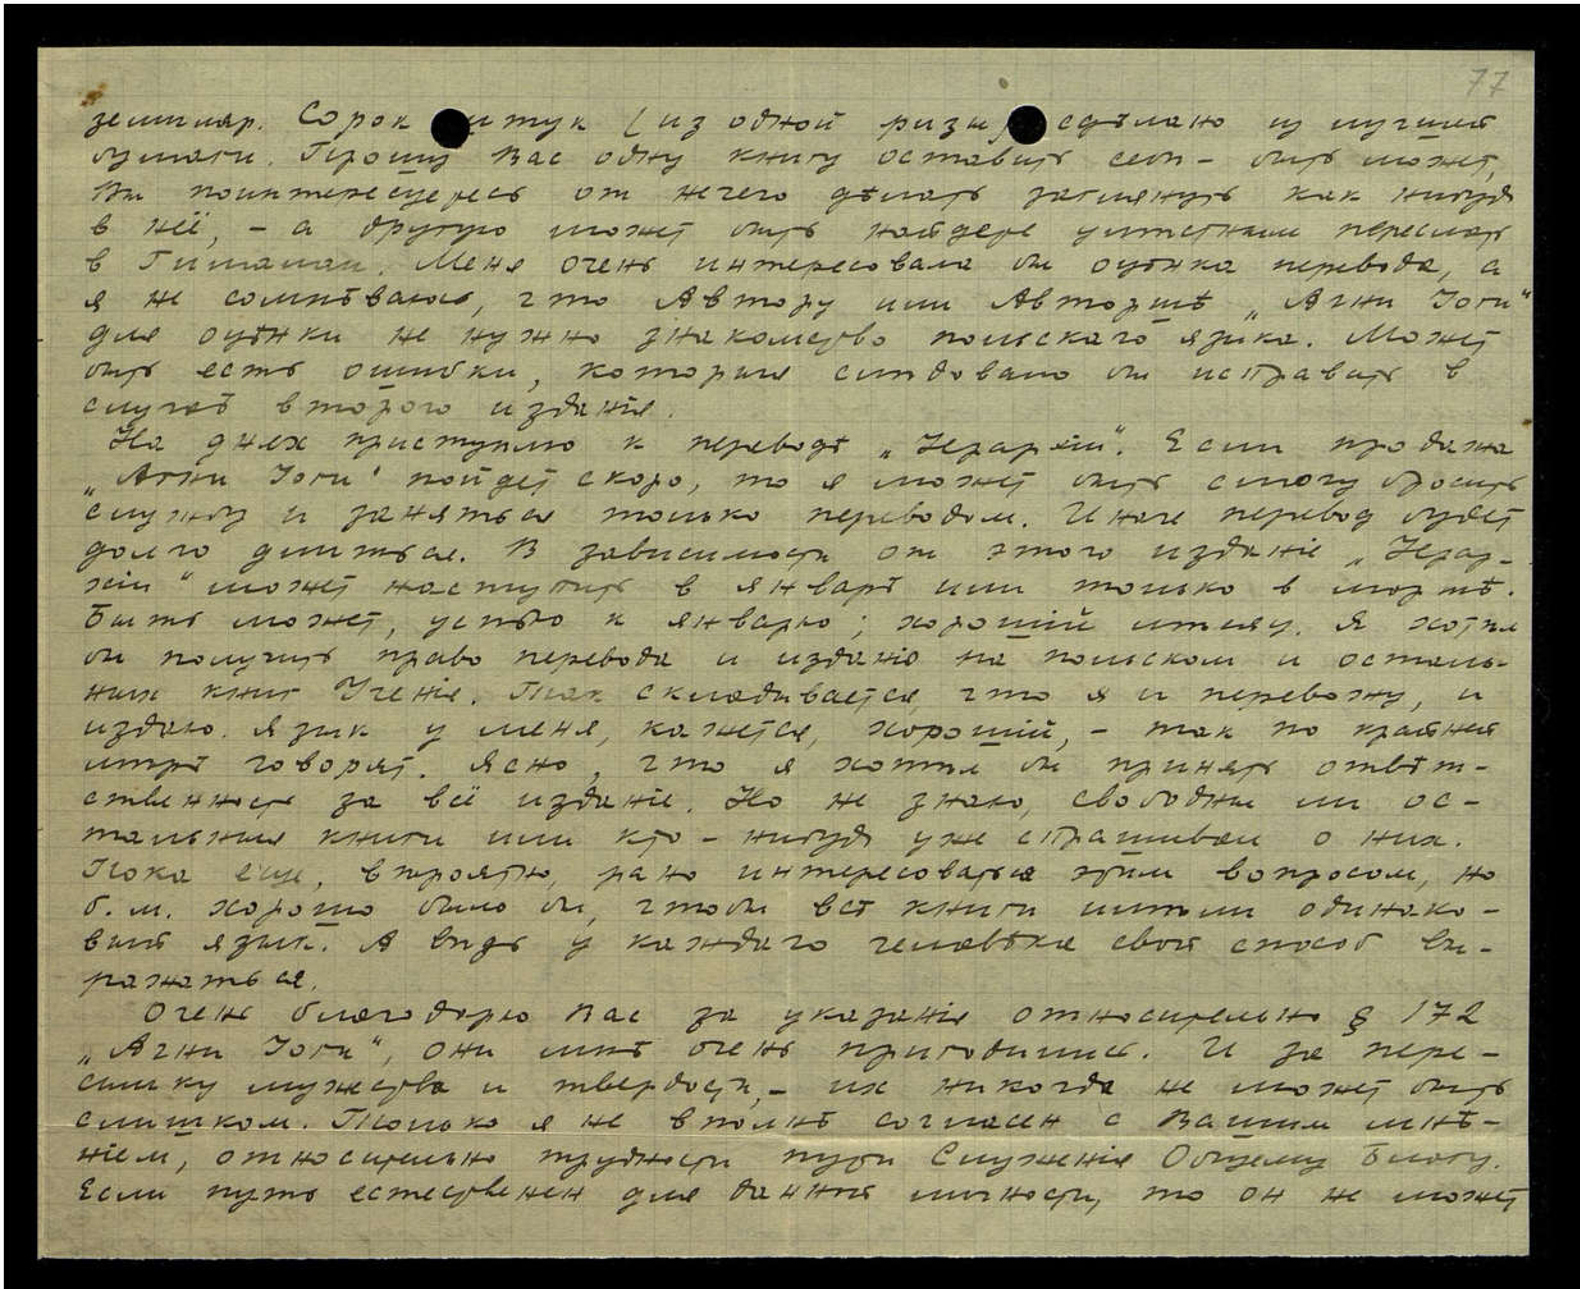 77
земпляр. Сорок штук (из одной ризы) сдѣлано из лучшей
бумаги. Прошу Вас одну книгу оставить себѣ - быть может,
Вы поинтересуетесь от нечего дѣлать заглянуть как нибудь
в неё, - а другую может быть найдете умѣстным переслать
в Гималаи. Меня очень интересовала бы оцѣнка перевода, а
я не сомнѣваюсь, что Автору или Авторшѣ „Агни Іоги"
для оцѣнки не нужно знакомство польскаго языка. Может
быть есть ошибки, которыя слѣдовало бы исправить в
случаѣ второго изданія.
На днях приступлю к переводѣ „Іерархіи". Если продажа
„Агни Іоги" пойдет скоро, то я может быть смогу бросить
службу и заняться только переводом. Иначе перевод будет
долго длиться. В зависимости от этого изданіе „Іерар-
хіи" может наступить в январѣ или только в мартѣ.
Быть может, успѣю к январю; хорошій мѣсяц. Я хотѣл
бы получить право перевода и изданія на польском и осталь-
ных книг Ученія. Так складывается, что я и перевожу, и
издаю. Язык у меня, кажется, хорошій, - так по крайней
мѣрѣ говорят. Ясно, что я хотѣл бы принять отвѣт-
ственность за всё изданіе. Но не знаю, свободны ли ос-
тальныя книги или кто-нибудь уже спрашивал о них.
Пока еще, вѣроятно, рано интересоваться этим вопросом, но
б. м. хорошо было бы, чтобы всѣ книги имѣли одинако-
вый язык. А вѣдь у каждаго человѣка свой способ вы-
ражаться.
Очень благодарю Вас за указанія относительно § 172
„Агни Іоги", они мнѣ очень пригодились. И за пере-
сылку мужества и твердости, - их никогда не может быть
слишком. Только я не вполнѣ согласен с Вашим мнѣ-
ніем, относительно трудности пути Служенія Общему Благу.
Если путь естественен для данной личности, то он не может